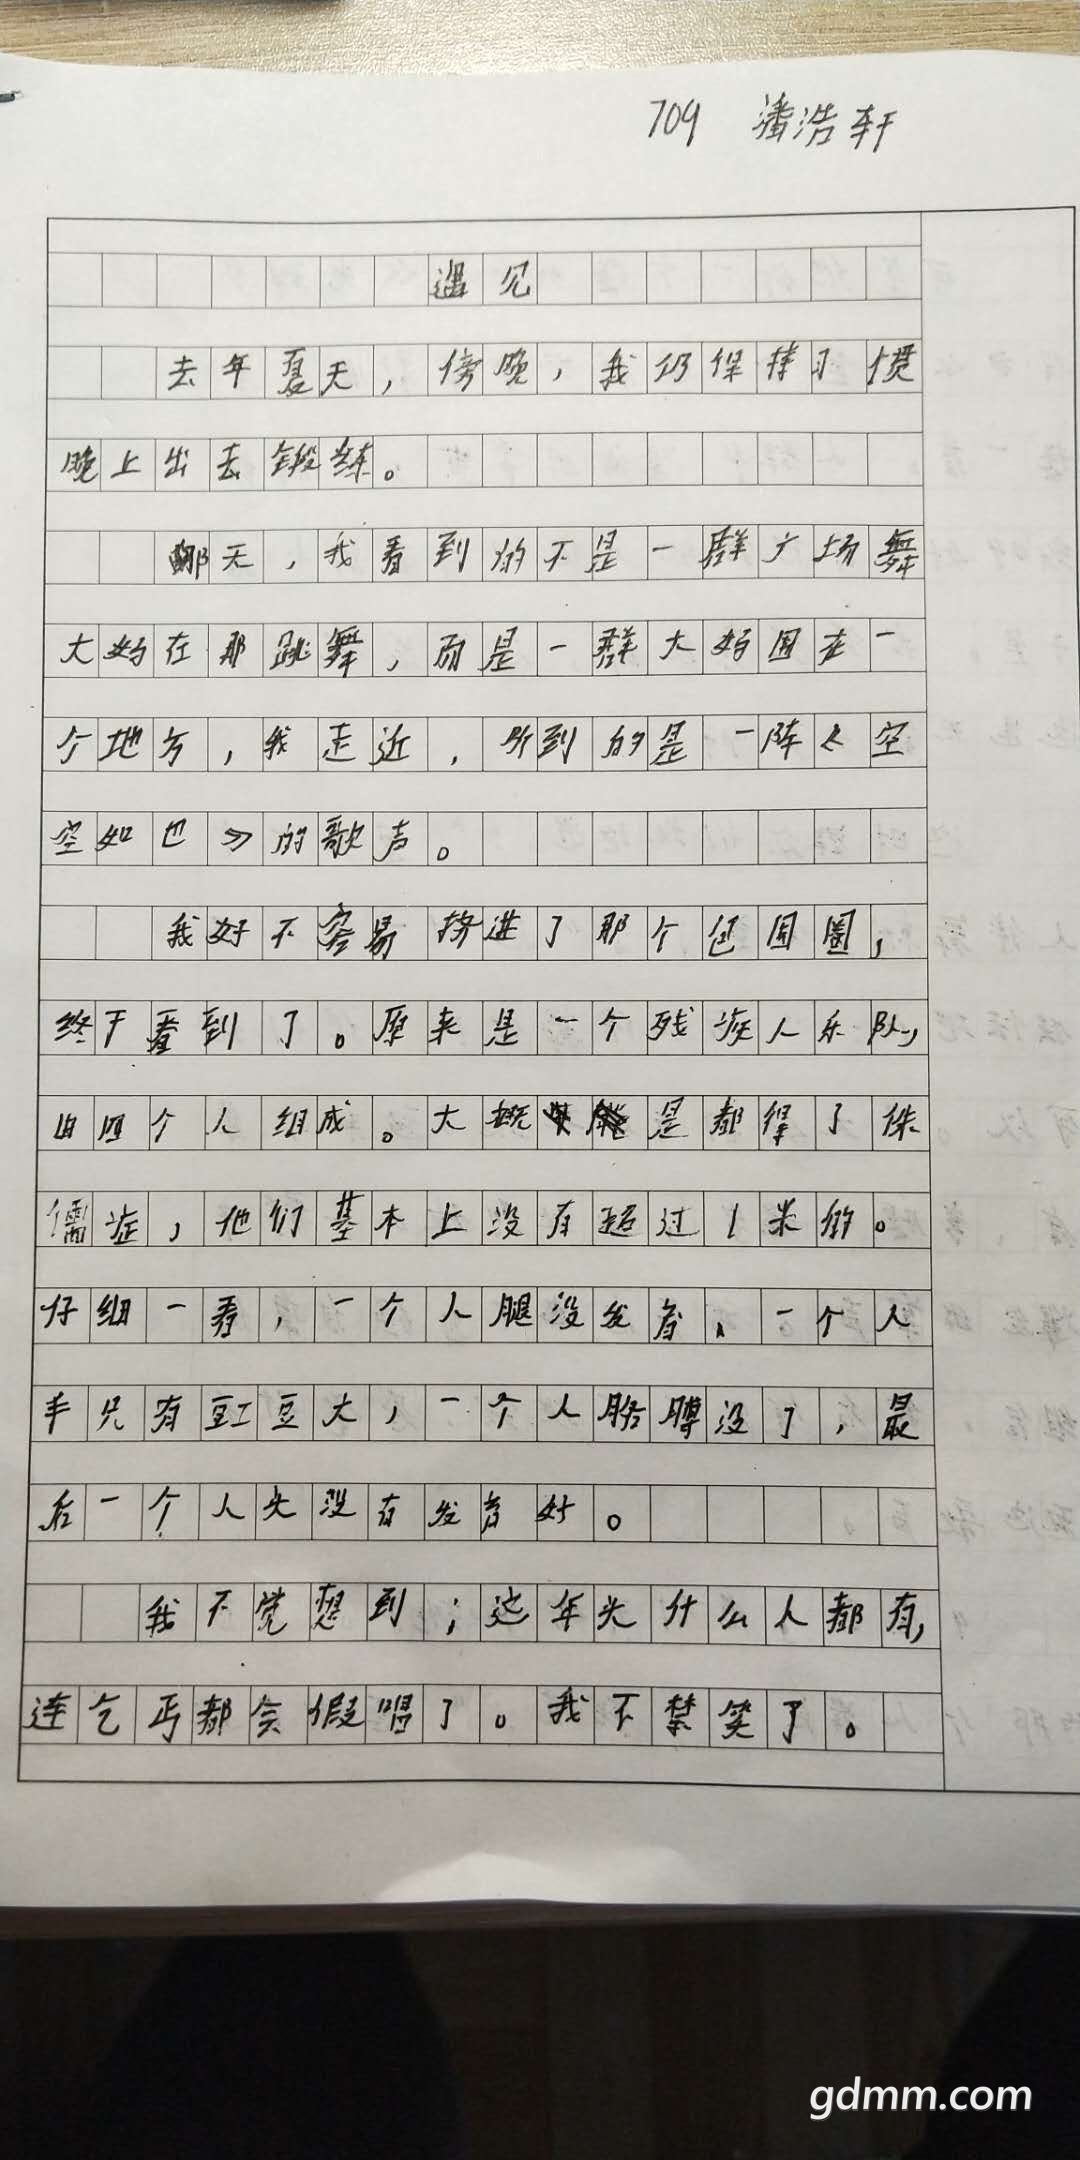 709 潘浩轩
遇见
去年夏天，傍晚，我仍保持习惯
晚上出去锻练。
那天，我看到的不是一群广场舞
大妈在那跳舞，而是一群大妈围在一
个地方，我走近，听到的是一阵《空
空如也》的歌声。
我好不容易挤进了那个包围圈，
终于看到了。原来是一个残疾人乐队，
由四个人组成。大概是都得了侏
儒症，他们基本上没有超过1米的。
仔细一看，一个人腿没发育、一个人
手只有豇豆大，一个人胳膊没了，最
后一个人头没有发育好。
我不觉想到；这年头什么人都有，
连乞丐都会假唱了。我不禁笑了。
gdmm.com